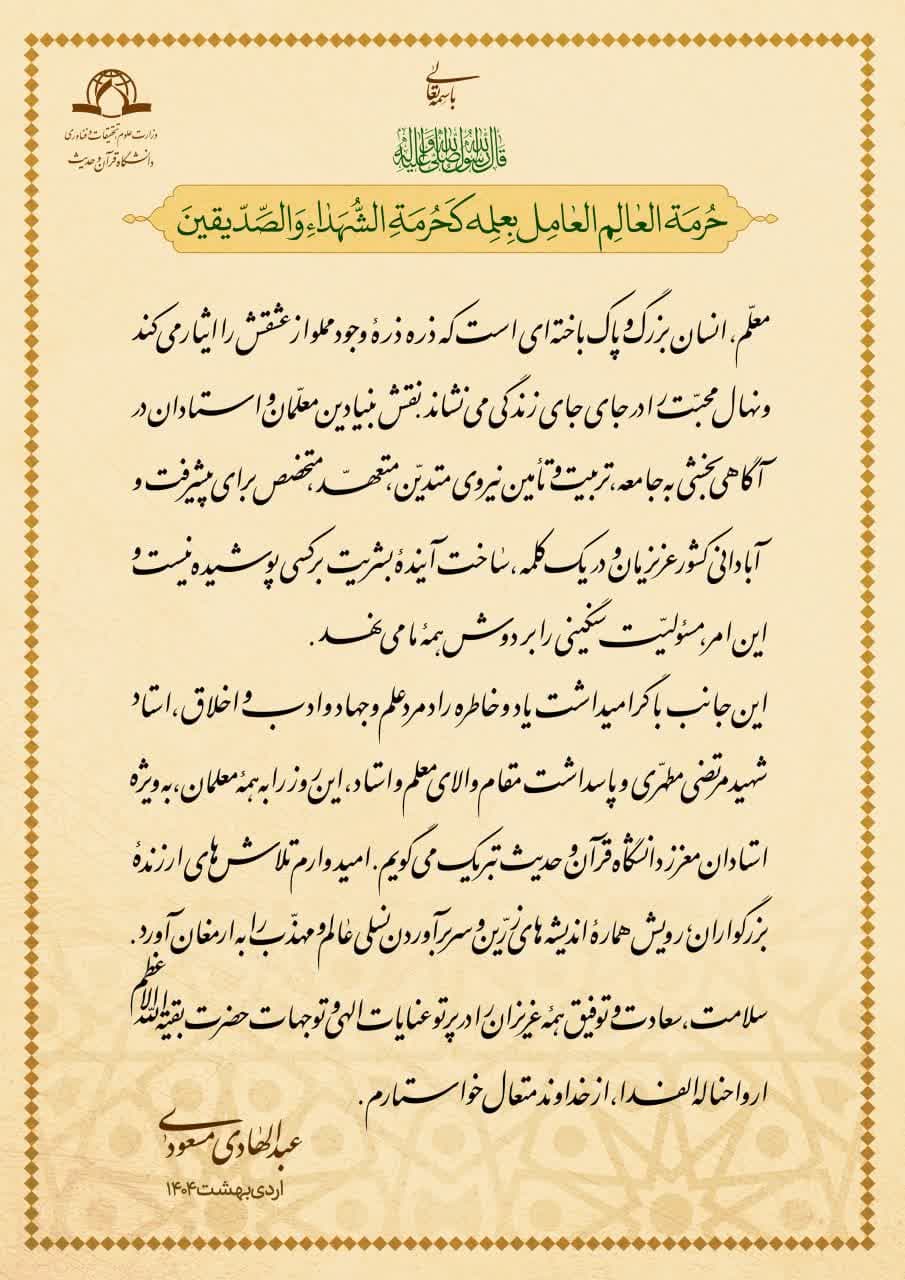 باسمه تعالی
وزارت علوم، تحقیقات و فناوری
دانشگاه قرآن و حدیث
قال رسول الله صلی الله علیه و آله
حُرمَة العالِم العامِل بِعِلمِه کَحُرمَةِ الشُّهَداءِ وَالصِّدّیقینَ
معلّم، انسان بزرگ و پاک باخته‌ای است که ذره ذرهٔ وجود مملو از عشقش را ایثار می‌کند
و نهال محبّت را در جای جای زندگی می‌نشاند. نقش بنیادین معلّمان و استادان در
آگاهی بخشی به جامعه، تربیت و تأمین نیروی متدیّن، متعهّد، متخصص برای پیشرفت و
آبادانی کشور عزیزمان و در یک کلمه، ساخت آیندهٔ بشریت بر کسی پوشیده نیست و
این امر، مسئولیّت سنگینی را بر دوش همهٔ ما می‌نهد.
این جانب با گرامیداشت یاد و خاطره راد مرد علم و جهاد و ادب و اخلاق، استاد
شهید مرتضی مطهّری و پاسداشت مقام والای معلم و استاد، این روز را به همهٔ معلمان، به ویژه
استادان معزز دانشگاه قرآن و حدیث تبریک می‌گویم. امیدوارم تلاش‌های ارزندهٔ
بزرگواران؛ رویش همارهٔ اندیشه های زرّین و سربرآوردن نسلی عالم و مهذّب را به ارمغان آورد.
سلامت، سعادت و توفیق همهٔ عزیزان را در پرتو عنایات الهی و توجهات حضرت بقیة الله الاعظم
ارواحنا له الفدا، از خداوند متعال خواستارم.
عبدالهادی مسعودی
اردیبهشت ۱۴۰۴